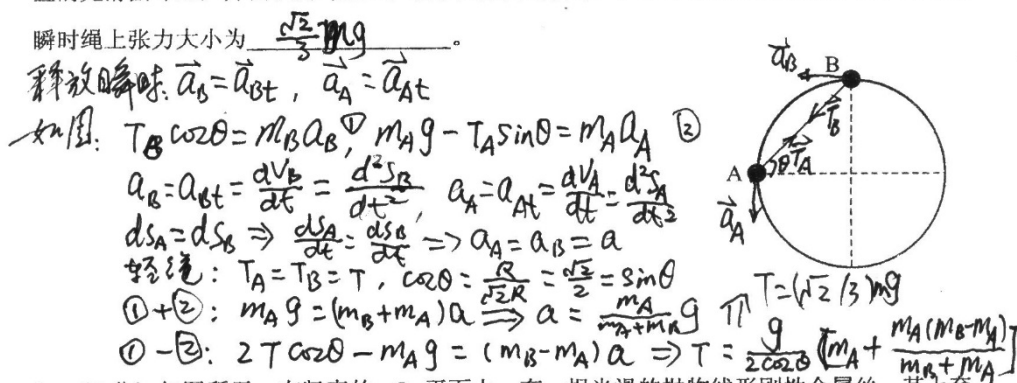 瞬时绳上张力大小为 √2/3 mg 。
释放瞬时: a⃗_B = a⃗_Bt , a⃗_A = a⃗_At
如图: T_B cosθ = m_B a_B ①, m_A g - T_A sinθ = m_A a_A ②
a_B = a_Bt = dV_B/dt = d²S_B/dt² , a_A = a_At = dV_A/dt = d²S_A/dt²
dS_A = dS_B ⇒ dS_A/dt = dS_B/dt ⇒ a_A = a_B = a
轻绳: T_A = T_B = T , cosθ = R/√2R = √2/2 = sinθ
①+②: m_A g = (m_B + m_A) a ⇒ a = m_A/(m_A + m_B) g
①-②: 2T cosθ - m_A g = (m_B - m_A) a ⇒ T = g/(2cosθ) [m_A + m_A(m_B - m_A)/(m_B + m_A)]
⇑ T = (√2/3) mg
a⃗_B B
T⃗_B
A θ T⃗_A
a⃗_A